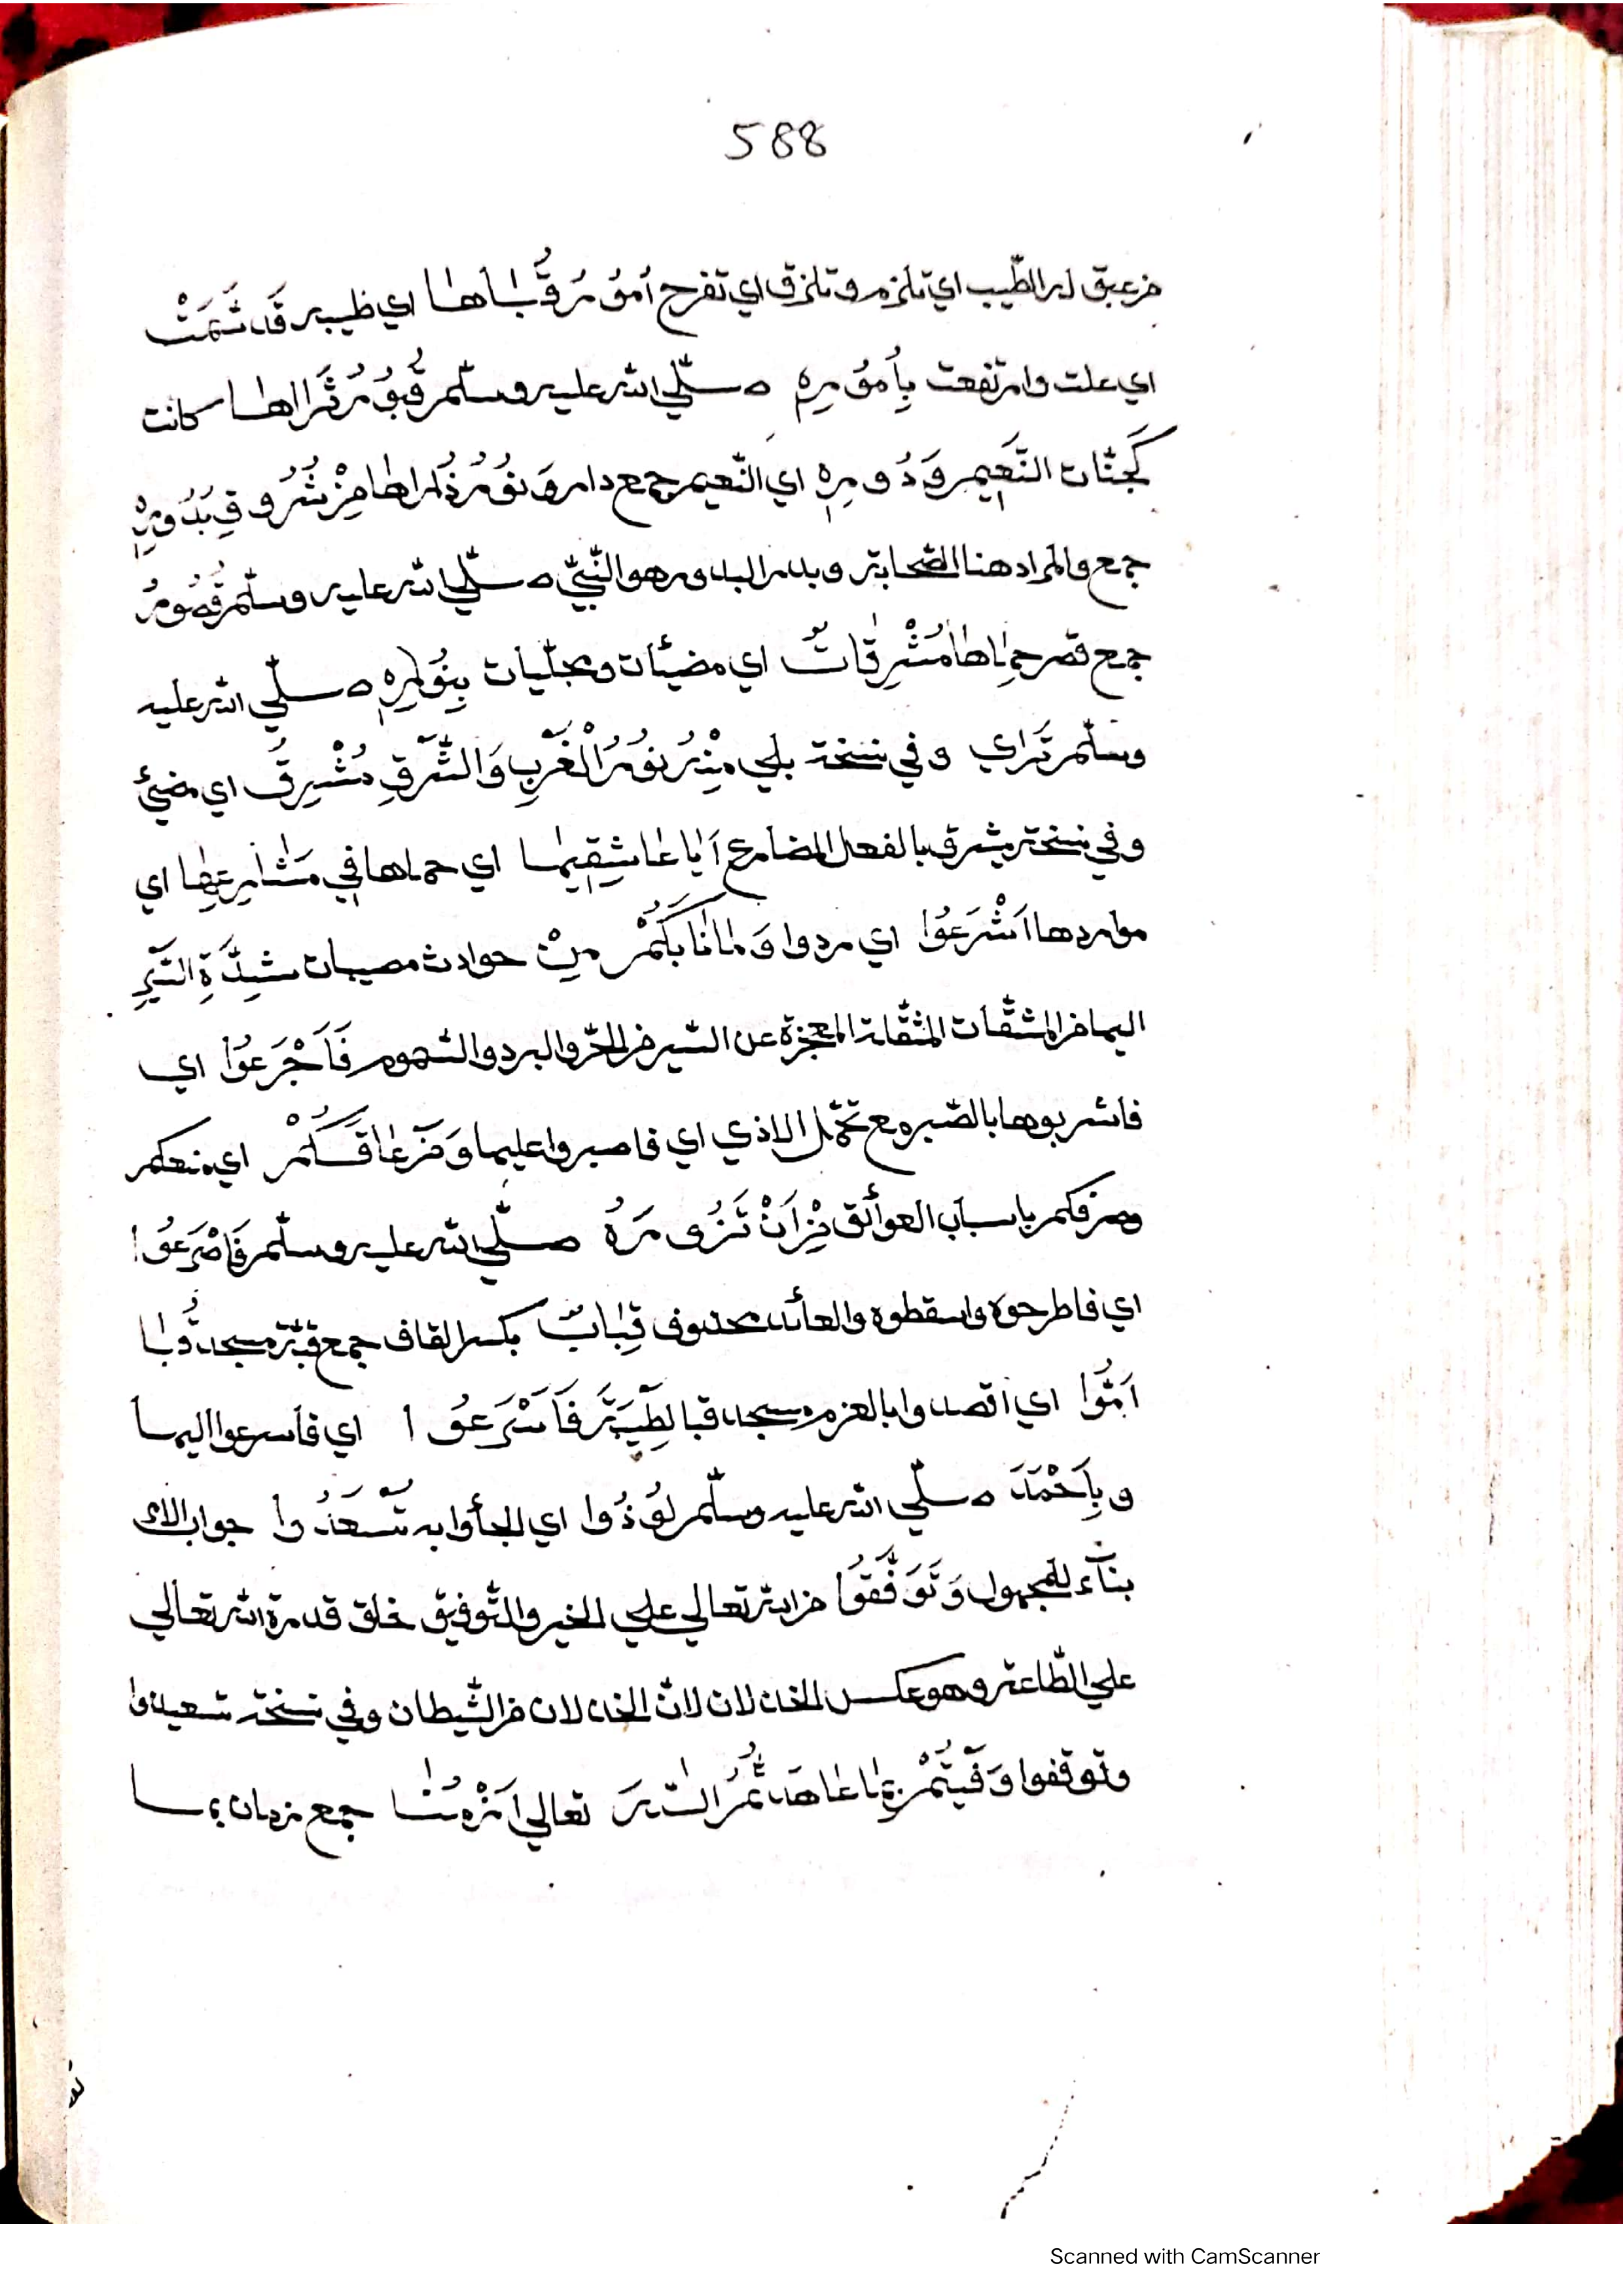 588
من عبق به الطّيب اي تلزم وتلزق اي تفرح أُمُوُرُ قُبَاهَا اي طيبة قَدْ سَمَتْ
اي علت وارتفعت بِأُمُورِهِ صلّي الله عليه وسلّم قُبُورُ ثَرَاهَا كانت
كَجَنّات النَّعِيمِ وَدُورِهِ اي النّعيم جمع دار وَنُورُ ذُرَاهَا مِنْ شُرُوقِ بُدُورِهِ
جمع والمراد هنا الصّحابة وبدر البدور هو النّبيّ صلّي الله عليه وسلّم قُصُورُ
جمع قصر حِمَاهَا مُشْرِقَاتٌ اي مضيئات ومجلّيات بِنُورِهِ صلّي الله عليه
وسلّم تَرَاي وفي نسخة بلي مِنْهُ نُورُ الْغَرْبِ وَالشَّرْقِ مُشْرِقُ اي مضيئ
وفي نسخة يشرق بالفعل المضارع أَيَا عَاشِقِيهَا اي حماها فِي مَشَارِعِهَا اي
مواردها اَشْرَعُوا اي ردوا وَمَا نَابَكُمْ مِنْ حوادث مصيبات شِدَّةِ السَّيْرِ
اليها من المشقّات المثقّلة المعجزة عن السّير من الحرّ والبرد والسّموم فَاَجْرَعُوا اي
فاشربوها بالصّبر مع تحمّل الاذي اي فاصبروا عليها وَمَنْ عَاقَكُمْ اي منعكم
وصرفكم باسباب العوائق مِنْ اَنْ تَزُورَهُ صلّي الله عليه وسلّم فَاصْرَعُوا
اي فاطرحوه واسقطوه والعائد محذوف قِبَابٌ بكسر القاف جمع قبّة مسجد قُبَا
اَمُّوا اي اقصدوا بالعزم مسجد قبا لِطَيْبَةَ فَاَسْرَعُوا اي فأسرعوا اليها
وبِاَحْمَدَ صلّي الله عليه وسلّم لُوذُوا اي الجأوا به تُسْعَدُوا جواب الامر
بناء للمجهول وَتُوَفَّقُوا من الله تعالي علي الخير والتّوفيق خلق قدرة الله تعالي
علي الطّاعة وهو عكس الخذلان لانّ الخذلان من الشّيطان وفي نسخة تسعدوا
وتوقفوا وَفَيْتُمْ بِمَا عَاهَدتُّمُ اللّٰهَ تعالي اَزْمُنًا جمع زمان بها
Scanned with CamScanner